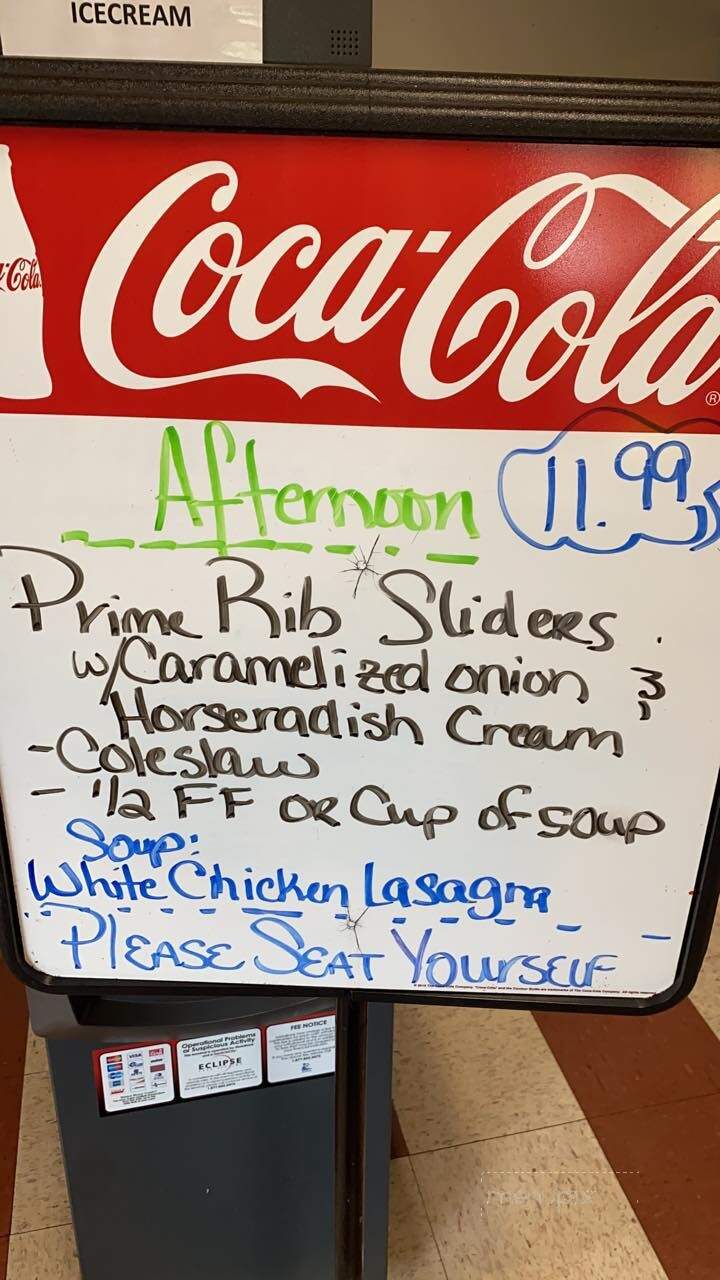 ICECREAM
Coca-Cola
Coca-Cola®
Afternoon 11.99
Prime Rib Sliders
w/Caramelized onion &
Horseradish Cream
- Coleslaw
- 1/2 FF OR Cup of soup
Soup:
White Chicken Lasagna
PLEASE SEAT YOURSELF
Operational Problems
or Suspicious Activity
ECLIPSE
FEE NOTICE
VISA